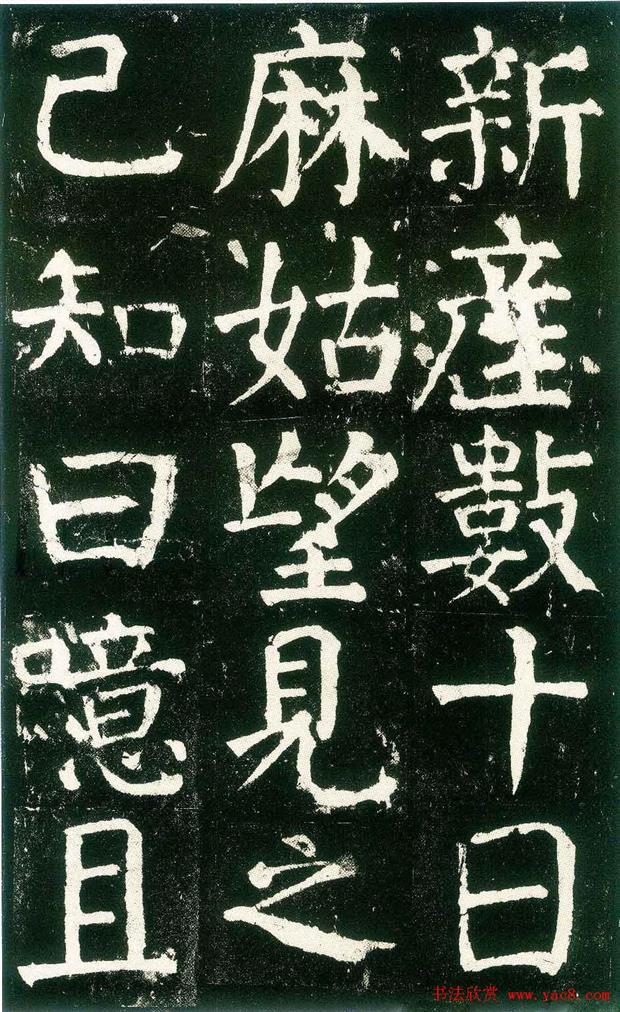 新產數十日
麻姑望見之
已知曰噫且
书法欣赏 www.yac8.com